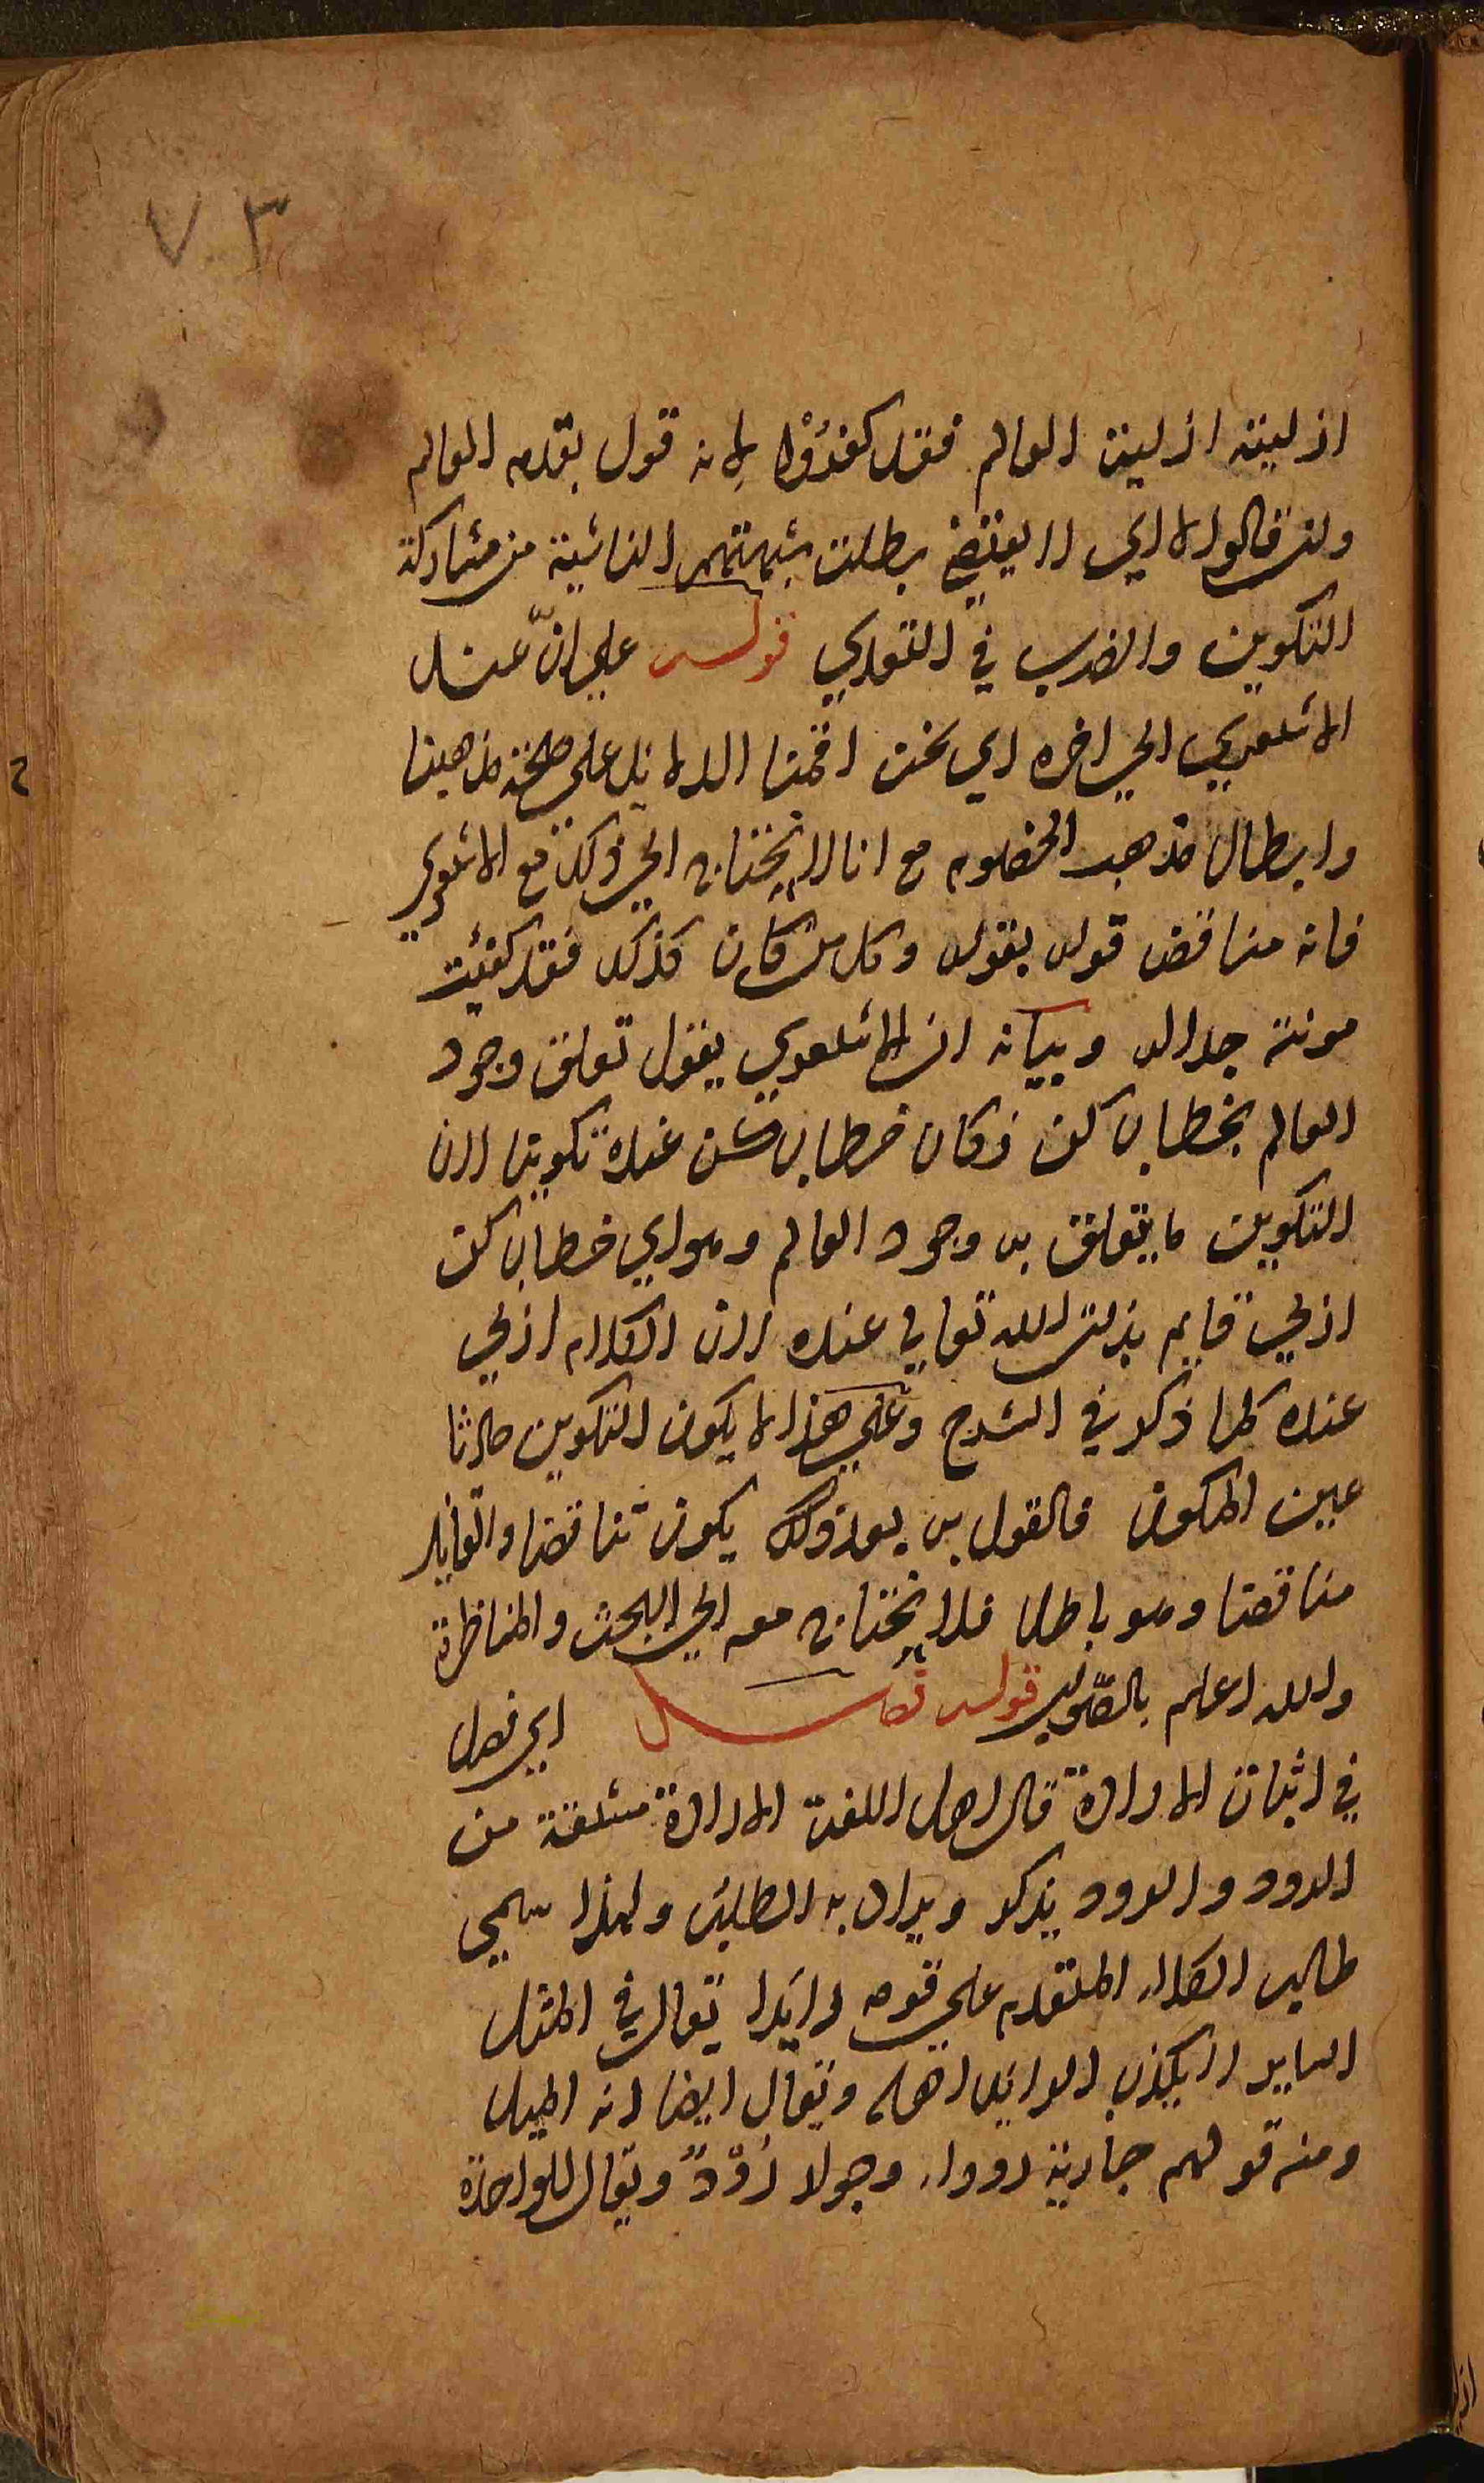 ٧٣
ازليته ازلية العالم فقد كفروا لانه قول بقدم العالم
ولئن قالوا لا اي لا يقتضي بطلت شبهتهم الناشية من مشاركة
التكوين والضرب في التعدي قوله على ان عند
الاشعري الى اخره اي نحن اقمنا الدلايل على صحة مذهبنا
وابطال مذهب الخصوم مع انا لا نحتاج الى ذلك مع الاشعري
فانه مناقض قوله بقوله وكل من كان كذلك فقد كفيت
مونة جداله وبيانه ان الاشعري يقول تعلق وجود
العالم بخطاب كن فكان خطاب كن عنده تكوينا لان
التكوين ما يتعلق به وجود العالم وهو اي خطاب كن
ازلي قايم بذات الله تعالى عنده لان الكلام ازلي
عنده كما ذكر في الشرح وعلى هذا لا يكون التكوين حادثا
عين المكون فالقول به بعد ذلك يكون تناقضا والقايل
مناقضا وهو باطل فلا نحتاج معه الى البحث والمناظرة
والله اعلم بالصواب قوله فصل اي فصل
في اثبات الارادة قال اهل اللغة الارادة مشتقة من
الرود والرود يذكر ويراد به الطلب ولهذا سمي
طالب الكلاء المتقدم على قومه رايدا يقال في المثل
الساير لا يكذب الرايد اهله ويقال ايضا انه الميل
ومنه قولهم جارية روداء وجوار رود ويقال للواحدة